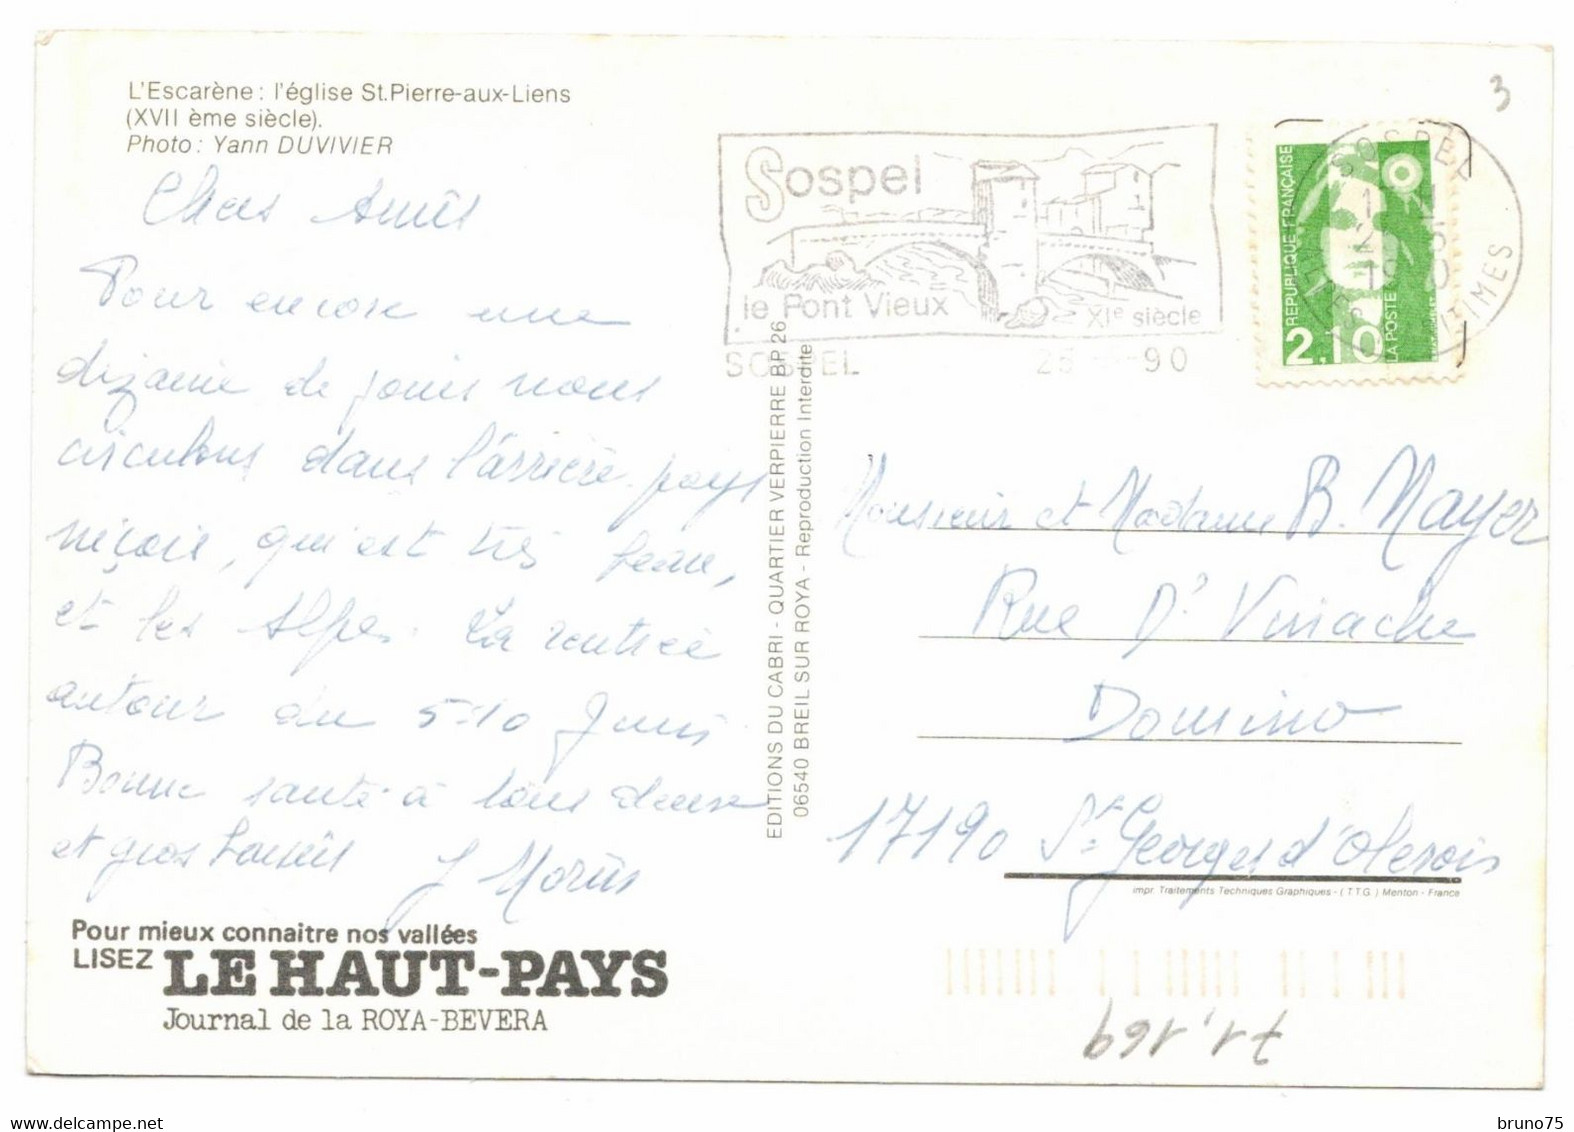 L'Escarène : l'église St.Pierre-aux-Liens
(XVII ème siècle).
Photo : Yann DUVIVIER
Chers Amis
Pour encore une
dizaine de jours nous
circulons dans l'arrière-pays
niçois, qui est très beau,
et les Alpes. La rentrée
autour du 5-10 Juin
Bonne santé à tous deux
et gros baisers J Morin
Pour mieux connaitre nos vallées
LISEZ LE HAUT-PAYS
Journal de la ROYA-BEVERA
EDITIONS DU CABRI - QUARTIER VERPIERRE BP 26
06540 BREIL SUR ROYA - Reproduction Interdite
Sospel
le Pont Vieux XIe siècle
SOSPEL 90
REPUBLIQUE FRANÇAISE
2,10
LA POSTE
SOSPEL
3
Monsieur et Madame B. Mayer
Rue Dr Viniache
Domino
17190 St Georges d'Oleron
Impr. Traitements Techniques Graphiques - ( T T G ) Menton - France
71,169
bruno75